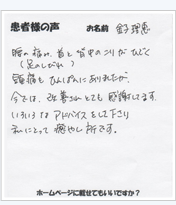 患者様の声 お名前 金子 理恵
腰の痛み、首と背中のこりがひどく
(足のしびれ)
頭痛もひんぱんにありましたが、
今では、改善されとても感謝してます。
いろいろなアドバイスをして下さり
私にとって癒やし所です。
ホームページに載せてもいいですか?